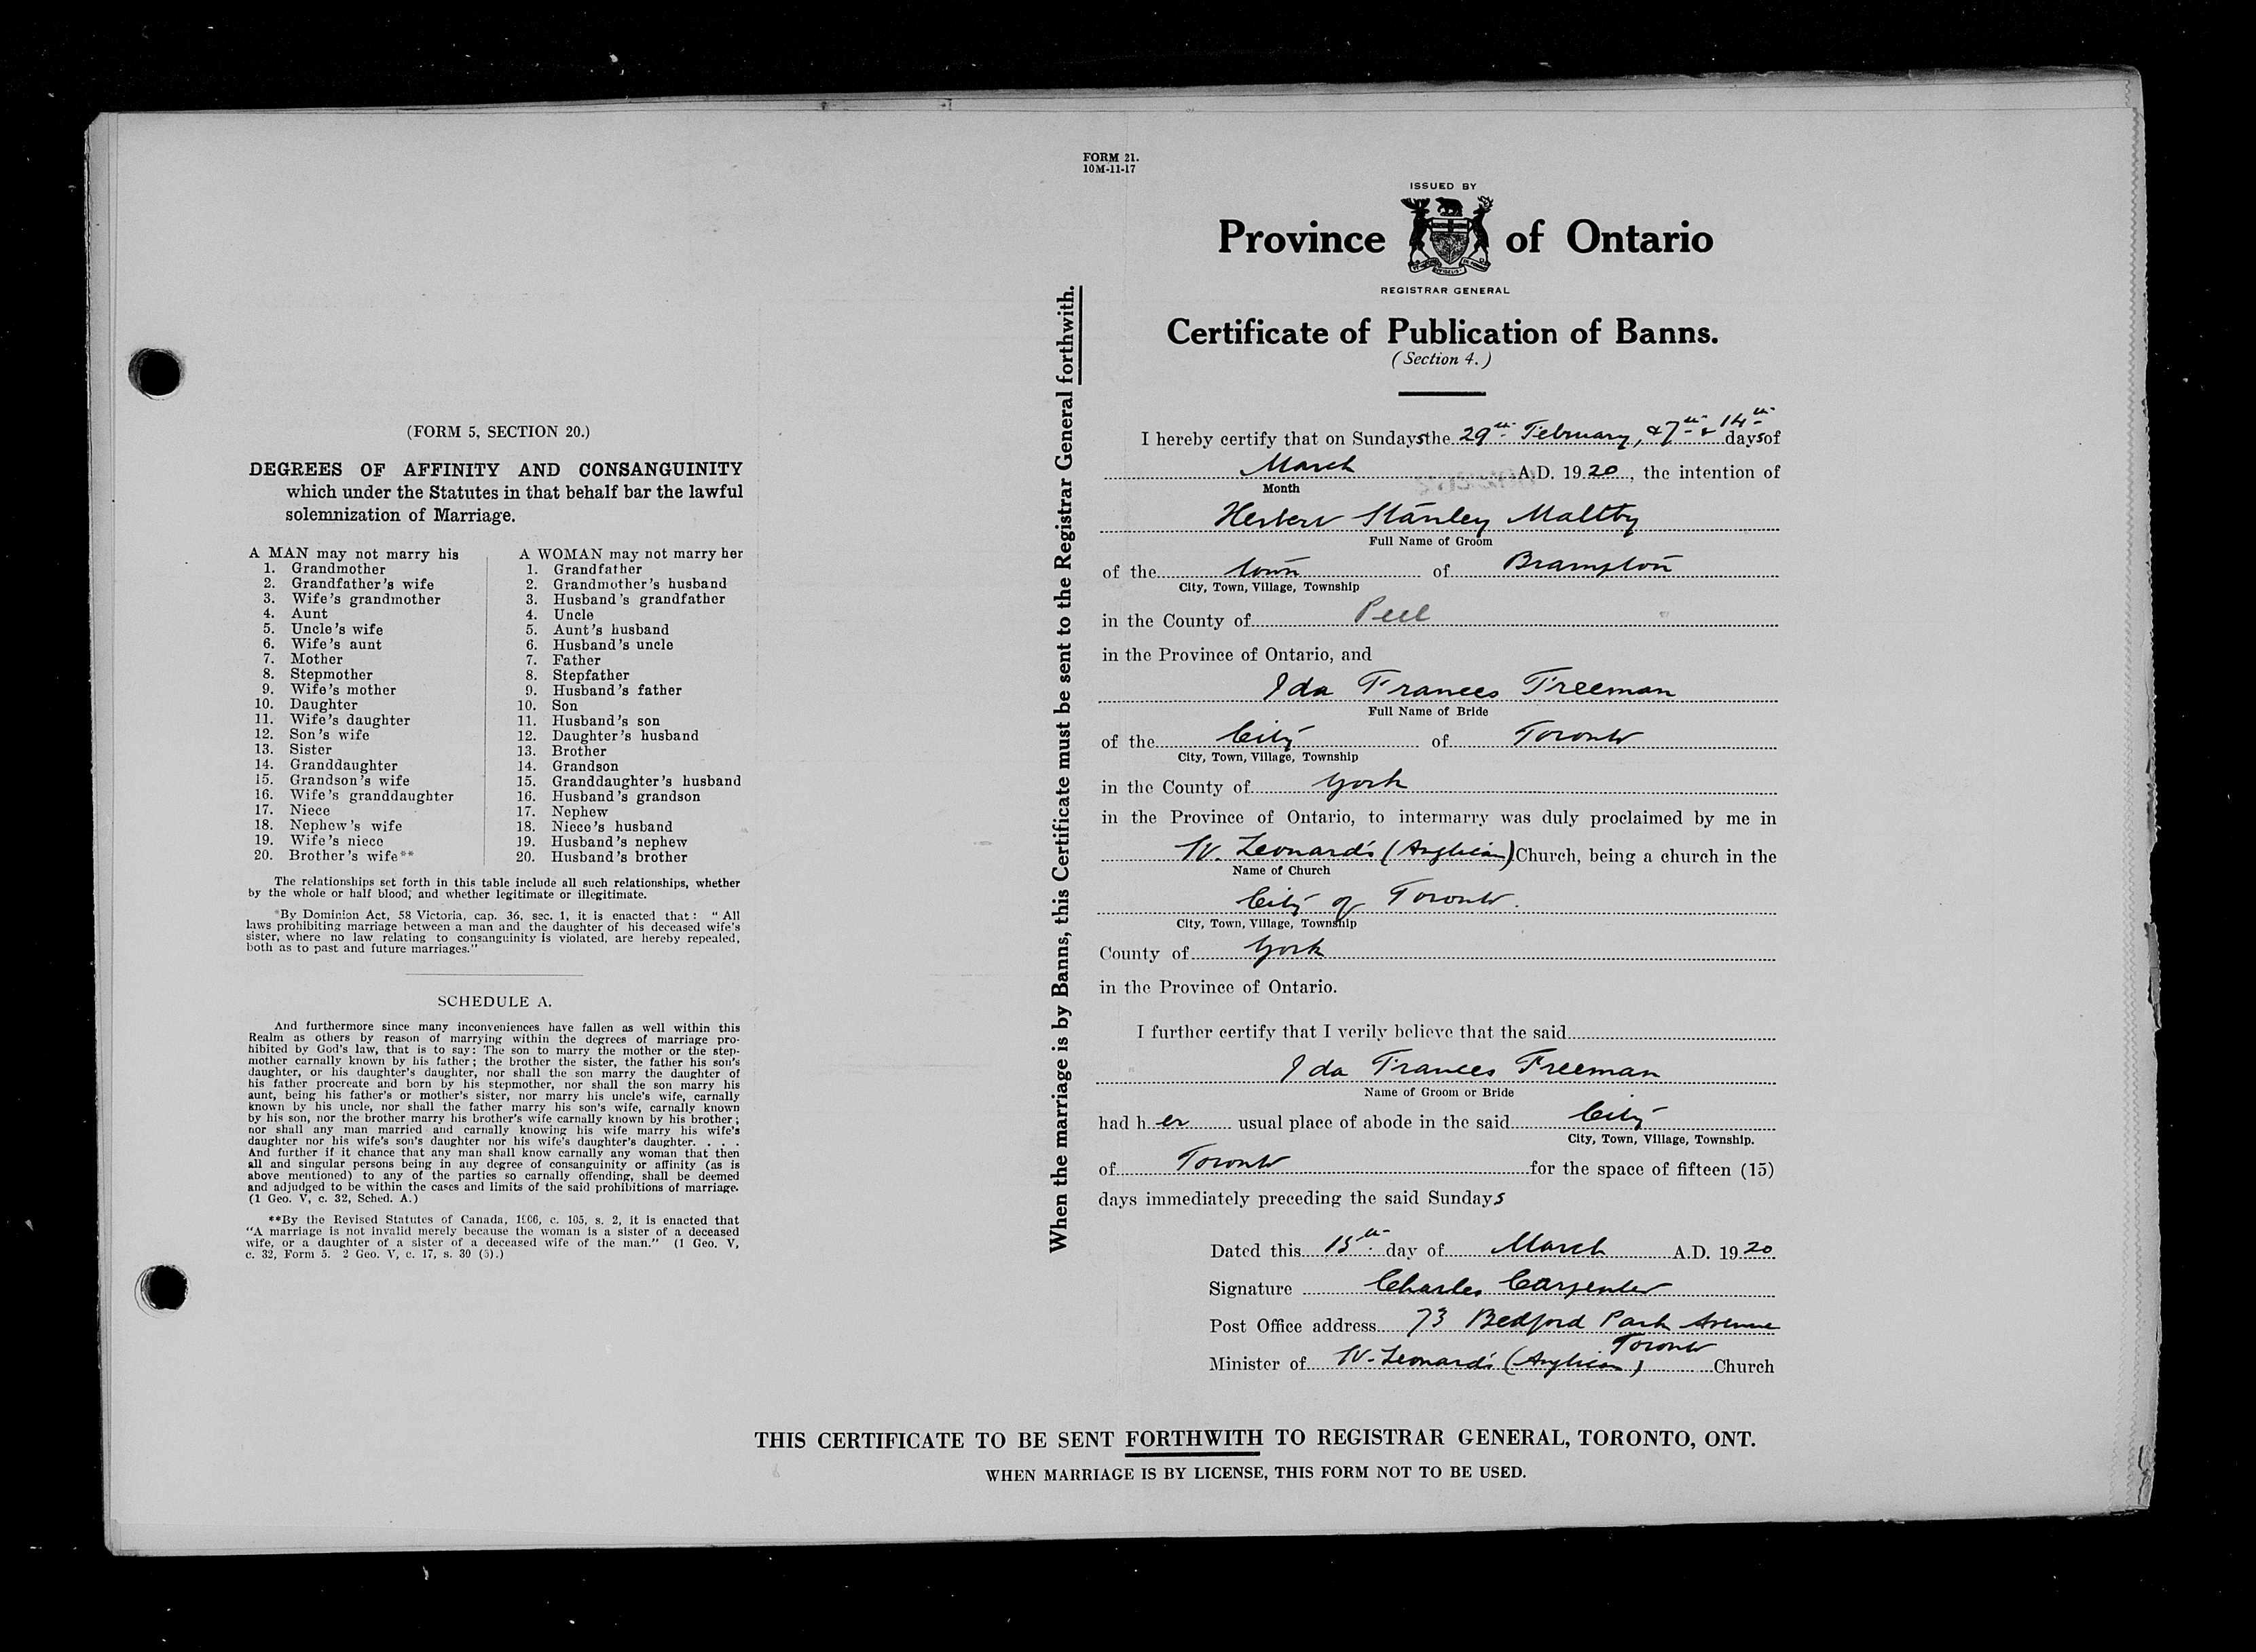 (FORM 5, SECTION 20.)
DEGREES OF AFFINITY AND CONSANGUINITY
which under the Statutes in that behalf bar the lawful
solemnization of Marriage.
A MAN may not marry his
1. Grandmother
2. Grandfather's wife
3. Wife's grandmother
4. Aunt
5. Uncle's wife
6. Wife's aunt
7. Mother
8. Stepmother
9. Wife's mother
10. Daughter
11. Wife's daughter
12. Son's wife
13. Sister
14. Granddaughter
15. Grandson's wife
16. Wife's granddaughter
17. Niece
18. Nephew's wife
19. Wife's niece
20. Brother's wife**
A WOMAN may not marry her
1. Grandfather
2. Grandmother's husband
3. Husband's grandfather
4. Uncle
5. Aunt's husband
6. Husband's uncle
7. Father
8. Stepfather
9. Husband's father
10. Son
11. Husband's son
12. Daughter's husband
13. Brother
14. Grandson
15. Granddaughter's husband
16. Husband's grandson
17. Nephew
18. Niece's husband
19. Husband's nephew
20. Husband's brother
The relationships set forth in this table include all such relationships, whether
by the whole or half blood, and whether legitimate or illegitimate.
*By Dominion Act, 58 Victoria, cap. 36, sec. 1, it is enacted that: "All
laws prohibiting marriage between a man and the daughter of his deceased wife's
sister, where no law relating to consanguinity is violated, are hereby repealed,
both as to past and future marriages."
SCHEDULE A.
And furthermore since many inconveniences have fallen as well within this
Realm as others by reason of marrying within the degrees of marriage pro-
hibited by God's law, that is to say: The son to marry the mother or the step-
mother carnally known by his father; the brother the sister, the father his son's
daughter, or his daughter's daughter, nor shall the son marry the daughter of
his father procreate and born by his stepmother, nor shall the son marry his
aunt, being his father's or mother's sister, nor marry his uncle's wife, carnally
known by his uncle, nor shall the father marry his son's wife, carnally known
by his son, nor the brother marry his brother's wife carnally known by his brother;
nor shall any man married and carnally knowing his wife marry his wife's
daughter nor his wife's son's daughter nor his wife's daughter's daughter. . . .
And further if it chance that any man shall know carnally any woman that then
all and singular persons being in any degree of consanguinity or affinity (as is
above mentioned) to any of the parties so carnally offending, shall be deemed
and adjudged to be within the cases and limits of the said prohibitions of marriage.
(1 Geo. V, c. 32, Sched. A.)
**By the Revised Statutes of Canada, 1906, c. 105, s. 2, it is enacted that
"A marriage is not invalid merely because the woman is a sister of a deceased
wife, or a daughter of a sister of a deceased wife of the man." (1 Geo. V,
c. 32, Form 5. 2 Geo. V, c. 17, s. 30 (5).)
When the marriage is by Banns, this Certificate must be sent to the Registrar General forthwith.
FORM 21.
10M-11-17
ISSUED BY
Province of Ontario
REGISTRAR GENERAL
Certificate of Publication of Banns.
(Section 4.)
I hereby certify that on Sundays the 29th February, & 7th & 14th days of
March A.D. 1920, the intention of
Month
Herbert Stanley Maltby
Full Name of Groom
of the town of Brampton
City, Town, Village, Township
in the County of Peel
in the Province of Ontario, and
Ida Frances Freeman
Full Name of Bride
of the City of Toronto
City, Town, Village, Township
in the County of York
in the Province of Ontario, to intermarry was duly proclaimed by me in
St. Leonard's (Anglican) Church, being a church in the
Name of Church
City of Toronto.
City, Town, Village, Township
County of York
in the Province of Ontario.
I further certify that I verily believe that the said
Ida Frances Freeman
Name of Groom or Bride
had her usual place of abode in the said City
City, Town, Village, Township.
of Toronto for the space of fifteen (15)
days immediately preceding the said Sundays
Dated this 15th day of March A.D. 1920
Signature Charles Carpenter
Post Office address 73 Bedford Park Avenue
Toronto
Minister of St. Leonard's (Anglican) Church
THIS CERTIFICATE TO BE SENT FORTHWITH TO REGISTRAR GENERAL, TORONTO, ONT.
WHEN MARRIAGE IS BY LICENSE, THIS FORM NOT TO BE USED.